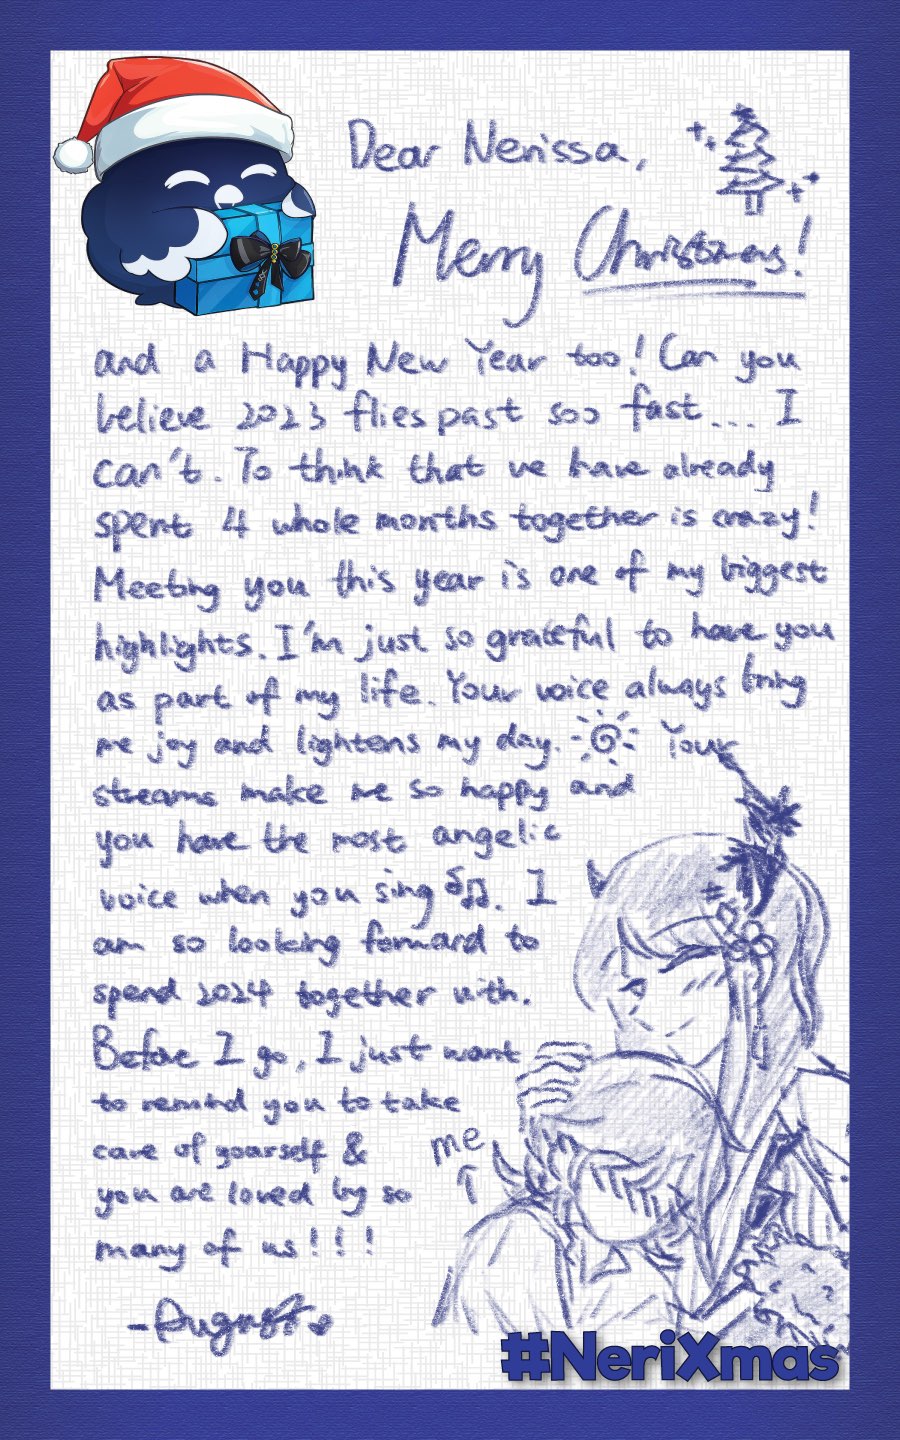 Dear Nerissa,
Merry Christmas!
and a Happy New Year too! Can you
believe 2023 flies past soo fast... I
can't. To think that we have already
spent 4 whole months together is crazy!
Meeting you this year is one of my biggest
highlights. I'm just so grateful to have you
as part of my life. Your voice always bring
me joy and lightens my day. Your
streams make me so happy and
you have the most angelic
voice when you sing. I
am so looking forward to
spend 2024 together with.
Before I go, I just want
to remind you to take
care of yourself &
you are loved by so
many of us!!!
me
-August
#NeriXmas